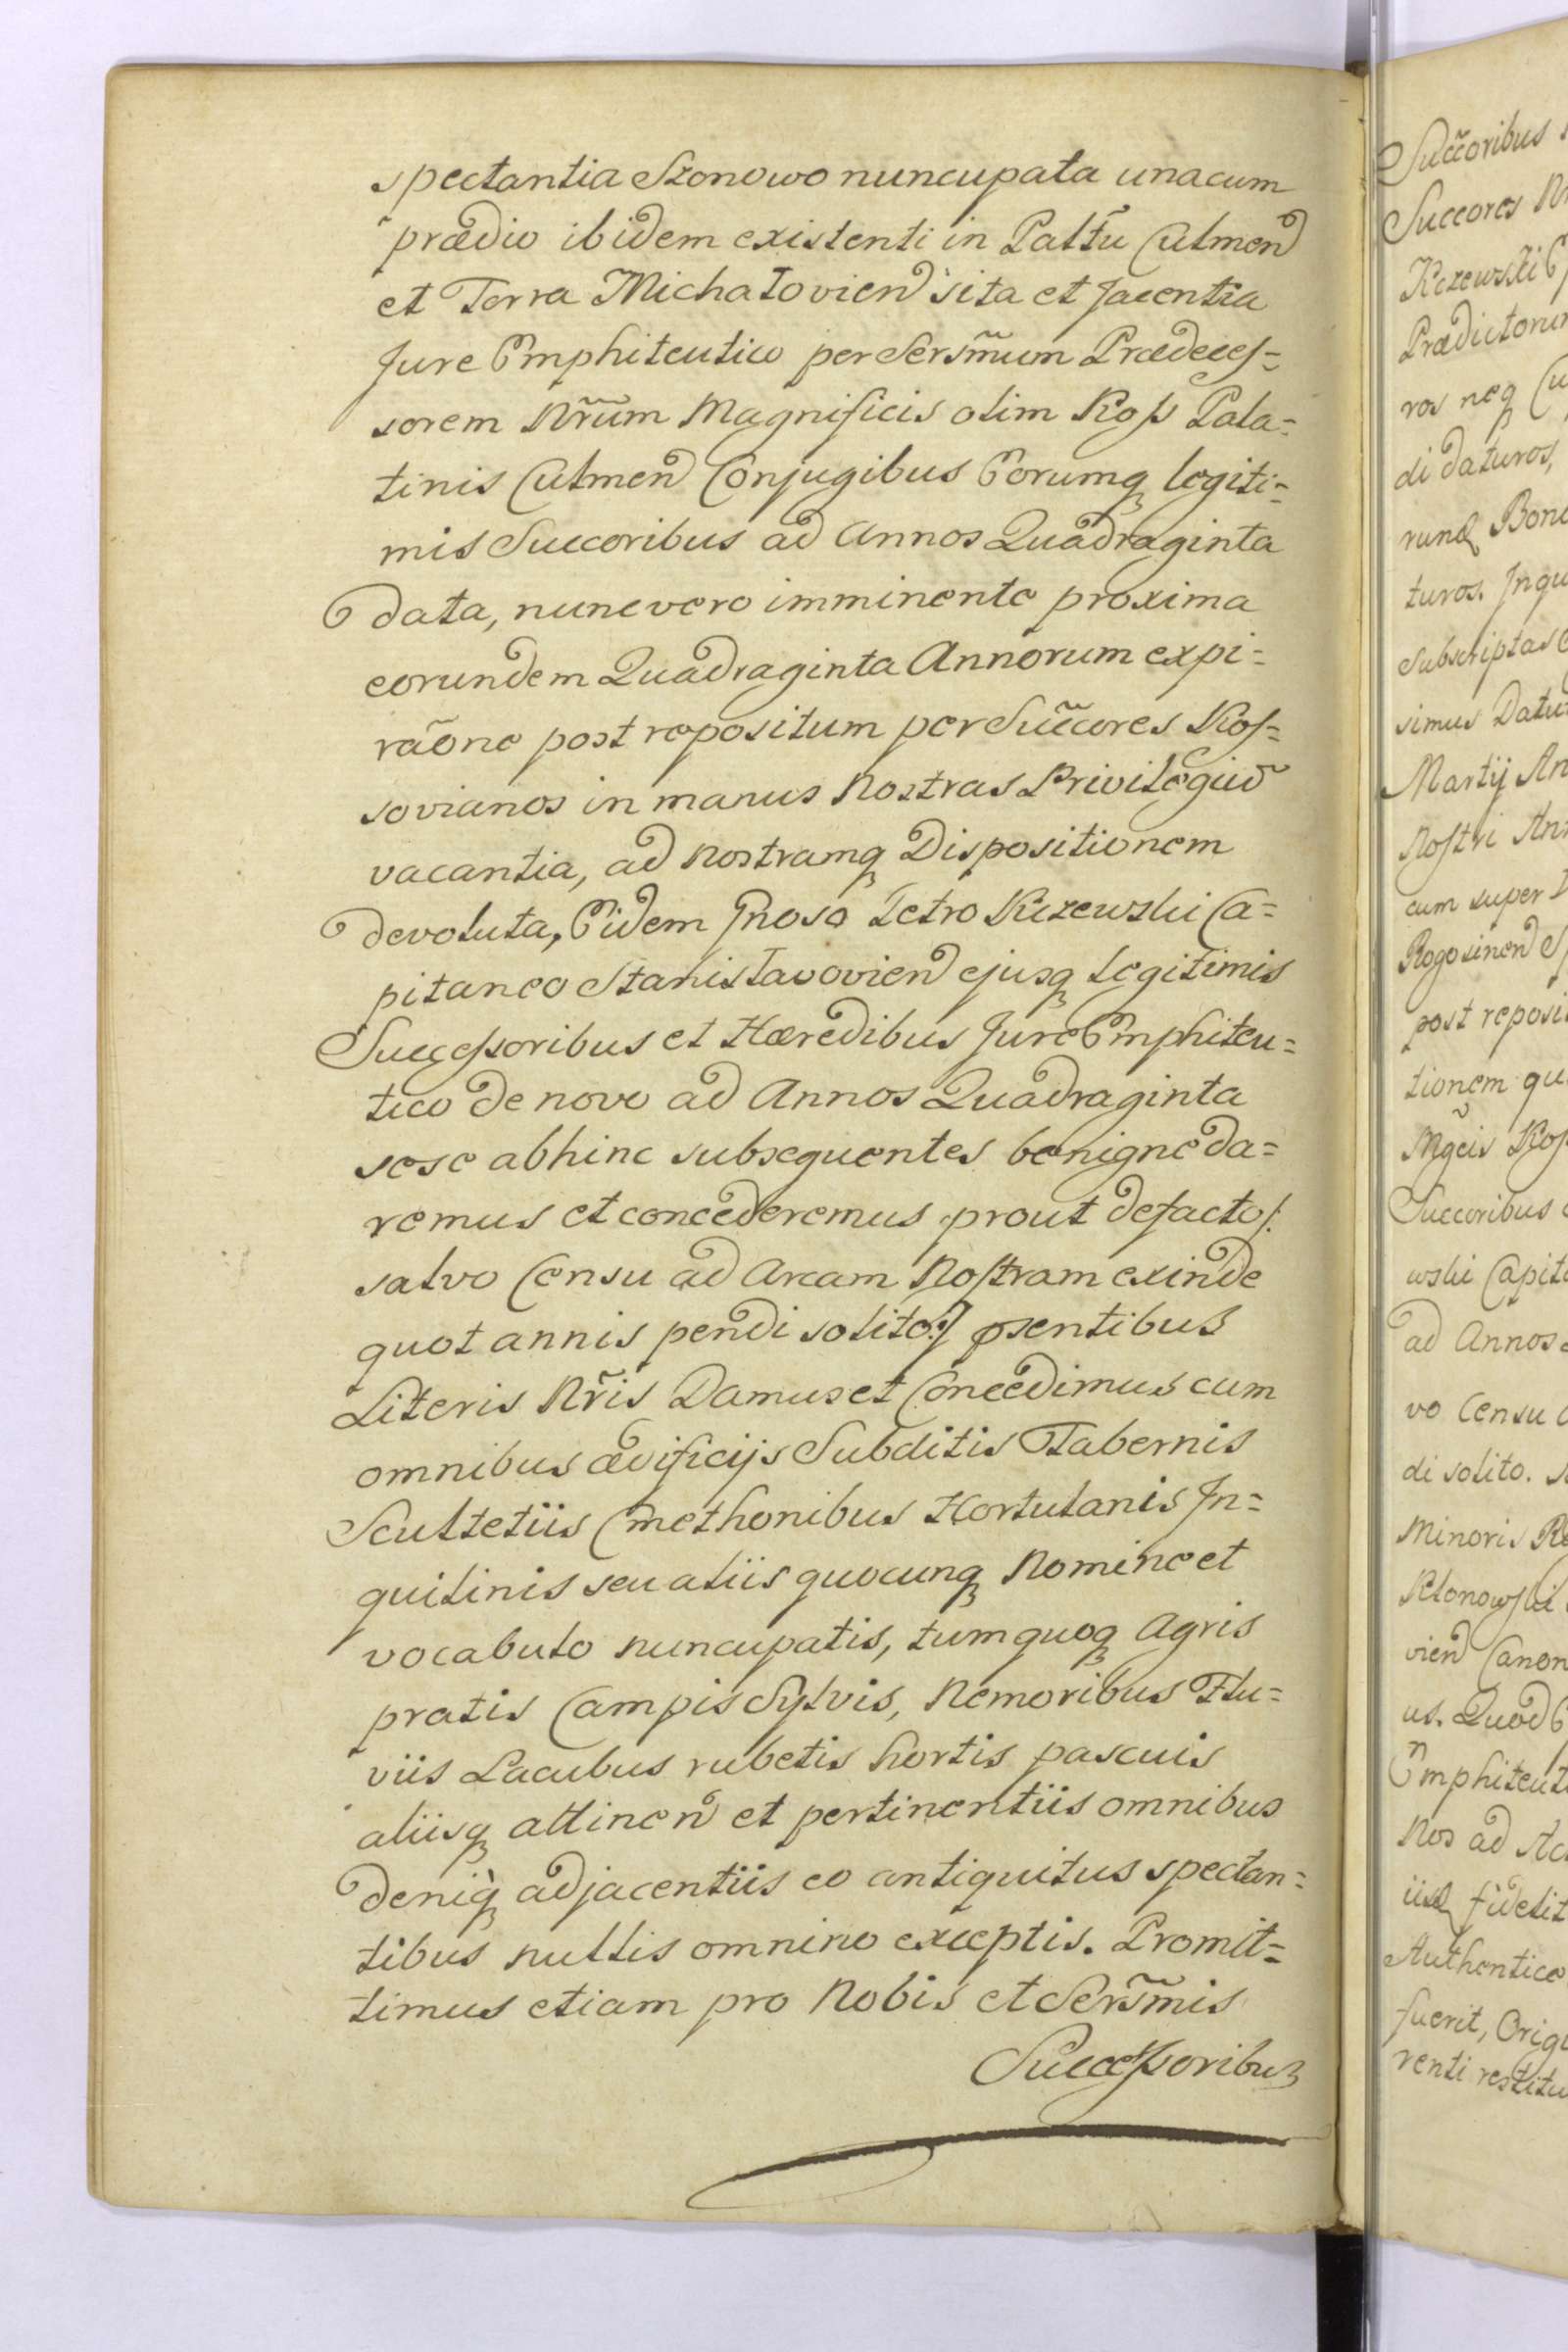 spectantia Szonowo nuncupata unacum
prædio ibidem existenti in Pallt̃u Culmen̄
et Terra Michałovien̄ sita et jacentia
Jure Emphiteutico per Serꝰm̃um Prædeces=
sorem Nr̃um Magnificis olim Kosß Pala=
tinis Culmen̄ Conjugibus Eorumq̨ legiti=
mis Succoribus ad Annos Quadraginta
data, nunc vero imminente proxima
eorundem Quadraginta Annorum expi=
raõne post repositum per Succ̃ores Kos=
sovianos in manus Nostras Privilegiū
vacantia, ad nostramq̨ Dispositionem
devoluta, Eidem Gnoso Petro Kczewski Ca=
pitaneo Stanisławovien̄ ejusq̨ legitimis
Successoribus et Hæredibus Jure Emphiteu=
tico de novo ad Annos Quadraginta
sese abhinc subsequentes benigne da=
remus et concederemus prout defacto/:
salvo Censu ad Arcam Nostram exinde
quot annis pendi solito:/ p̃sentibus
Literis Nr̃is Damus et Concedimus cum
omnibus ædificijs Subditis Tabernis
Scultetiis Cmethonibus Hortulanis In=
quilinis seu aliis quocunq̨ Nomine et
vocabulo nuncupatis, tum quoq̨ Agris
pratis Campis Sylvis, Nemoribus Flu=
viis Lacubus rubetis hortis pascuis
aliisq̨ attinen̄ et pertinentiis omnibus
deniq̨ adjacentiis eo antiquitus spectan=
tibus nullis omnino exceptis. Promit=
timus etiam pro Nobis et Serꝰm̃is
Successoribus
Succ̃oribus
Succores
Kczewski
Prædictorum
ros neq̨
di daturos,
Bon
turos. Inqu
subscriptas
simus Datu
Martij An
Nostri An
cum super
Rogosinen̄
post reposi
tionem qu
Mgcis Kos
Succoribus
wski Capit
ad Annos
vo Censu
di solito.
Minoris
Klonowski
vien̄ Canon
us. Quod
Emphiteut
Nos ad Ac
fidelit
Authentice
fuerit, Orig
renti restitu